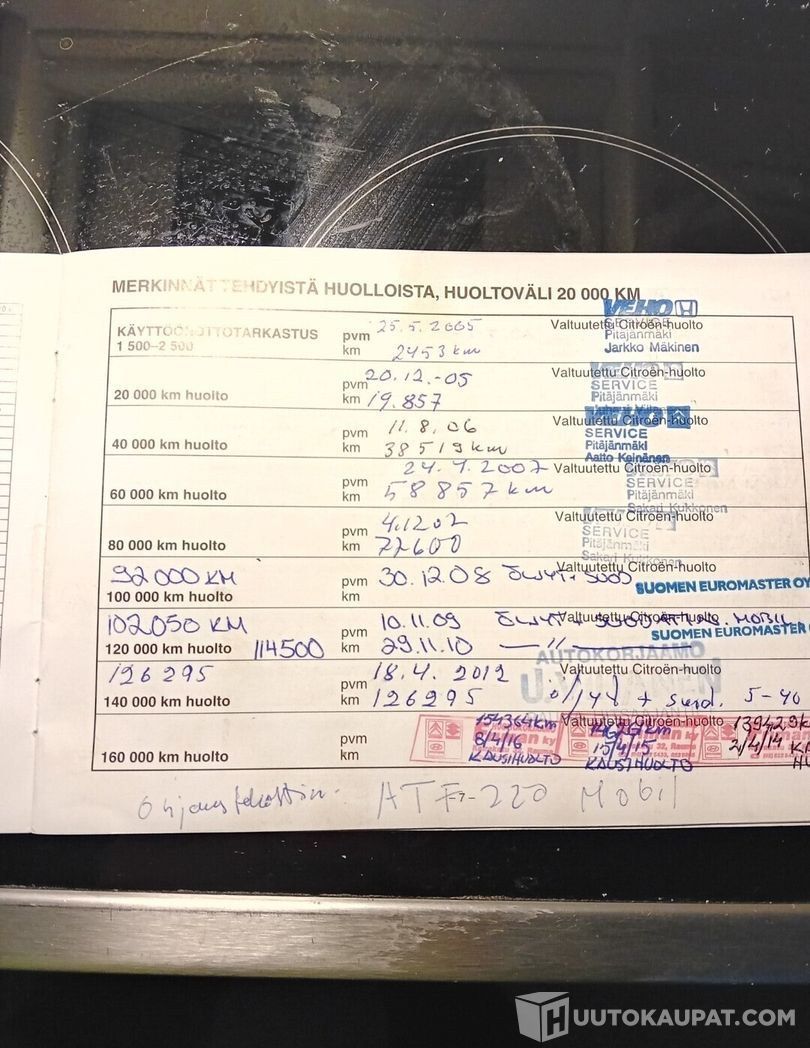 MERKINNÄT TEHDYISTÄ HUOLLOISTA, HUOLTOVÄLI 20 000 KM
KÄYTTÖÖNOTTOTARKASTUS
1 500–2 500
pvm 25.5.2005
km 2453 km
Valtuutettu Citroën-huolto
VEHO
SERVICE
Pitäjänmäki
Jarkko Mäkinen
20 000 km huolto
pvm 20.12.-05
km 19.857
Valtuutettu Citroën-huolto
SERVICE
Pitäjänmäki
40 000 km huolto
pvm 11.8.06
km 38519 km
Valtuutettu Citroën-huolto
VEHO
SERVICE
Pitäjänmäki
Aatto Keinänen
60 000 km huolto
pvm 24.7.2007
km 58857 km
Valtuutettu Citroën-huolto
SERVICE
Pitäjänmäki
Sakari Kukkonen
80 000 km huolto
pvm
km 77600
Valtuutettu Citroën-huolto
SERVICE
Pitäjänmäki
Sakari Kukkonen
92000 KM
100 000 km huolto
pvm 30.12.08
km
Valtuutettu Citroën-huolto
SUOMEN EUROMASTER OY
102050 KM
120 000 km huolto 114500
pvm 10.11.09
km 29.11.10 —〃—
Valtuutettu Citroën-huolto
SUOMEN EUROMASTER
126295
140 000 km huolto
pvm 18.4.2012
km 126295
Valtuutettu Citroën-huolto
AUTOKORJAAMO
+ suod. 5-40
160 000 km huolto
pvm
km
Valtuutettu Citroën-huolto
154364km
8/4/16
KAUSIHUOLTO
15/4/15
KAUSIHUOLTO
139429k
2/4/14
ATF-220 Mobil
HUUTOKAUPAT.COM